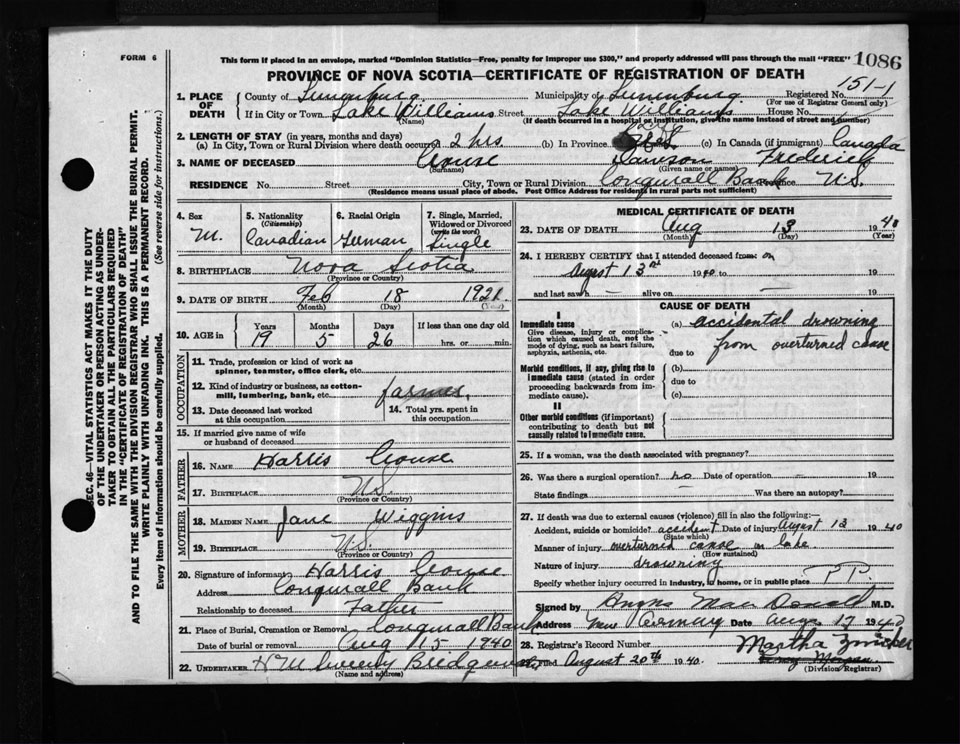 FORM 6
This form if placed in an envelope, marked "Dominion Statistics—Free, penalty for improper use $300," and properly addressed will pass through the mail "FREE" 1086
PROVINCE OF NOVA SCOTIA—CERTIFICATE OF REGISTRATION OF DEATH
151-1
1. PLACE OF DEATH County of Lunenburg Municipality of Lunenburg Registered No.
(For use of Registrar General only)
If in City or Town Lake Williams Street Lake Williams House No.
(Name) (If death occurred in a hospital or institution, give the name instead of street and number)
2. LENGTH OF STAY (in years, months and days)
(a) In City, Town or Rural Division where death occurred 2 hrs (b) In Province (c) In Canada (if immigrant) Canada
3. NAME OF DECEASED Crouse Dawson Frederick
(Surname) (Given name or names)
RESIDENCE No. Street City, Town or Rural Division Conquerall Bank Province N.S.
(Residence means usual place of abode. Post Office Address for residents in rural parts not sufficient)
4. Sex M.
5. Nationality (Citizenship) Canadian
6. Racial Origin German
7. Single, Married, Widowed or Divorced (write the word) Single
8. BIRTHPLACE Nova Scotia
(Province or Country)
9. DATE OF BIRTH Feb 18 1921
(Month) (Day) (Year)
10. AGE in Years Months Days If less than one day old
19 5 26 hrs. or min.
OCCUPATION
11. Trade, profession or kind of work as spinner, teamster, office clerk, etc.
12. Kind of industry or business, as cotton-mill, lumbering, bank, etc. farmer
13. Date deceased last worked at this occupation
14. Total yrs. spent in this occupation
15. If married give name of wife or husband of deceased
FATHER
16. NAME Harris Crouse
17. BIRTHPLACE N.S.
(Province or Country)
MOTHER
18. MAIDEN NAME Jane Wiggins
19. BIRTHPLACE N.S.
(Province or Country)
20. Signature of informant Harris Crouse
Address Conquerall Bank
Relationship to deceased Father
21. Place of Burial, Cremation or Removal Conquerall Bank
Date of burial or removal Aug 15 1940
22. UNDERTAKER H M Sweeny Bridgewater
(Name and address)
MEDICAL CERTIFICATE OF DEATH
23. DATE OF DEATH Aug 13 1940
(Month) (Day) (Year)
24. I HEREBY CERTIFY that I attended deceased from: on
August 13 1940 to 19
and last saw alive on 19
CAUSE OF DEATH
I
Immediate cause (a) accidental drowning
Give disease, injury or complication which caused death, not the mode of dying, such as heart failure, asphyxia, asthenia, etc.
due to from overturned canoe
Morbid conditions, if any, giving rise to immediate cause (stated in order proceeding backwards from immediate cause).
(b)
due to
(c)
II
Other morbid conditions (if important) contributing to death but not causally related to immediate cause.
25. If a woman, was the death associated with pregnancy?
26. Was there a surgical operation? no Date of operation 19
State findings Was there an autopsy?
27. If death was due to external causes (violence) fill in also the following:—
Accident, suicide or homicide? accident Date of injury August 13 1940
(State which)
Manner of injury overturned canoe in lake
(How sustained)
Nature of injury drowning
Specify whether injury occurred in industry, in home, or in public place P.P.
Signed by Angus MacDonald M.D.
Address New Germany Date Aug 17 1940
28. Registrar's Record Number
Martha Zwicker
Filed August 20th 1940.
(Division Registrar)
SEC. 46—VITAL STATISTICS ACT MAKES IT THE DUTY
OF THE UNDERTAKER OR PERSON ACTING AS UNDER-
TAKER TO OBTAIN ALL THE PARTICULARS REQUIRED
IN THE "CERTIFICATE OF REGISTRATION OF DEATH"
AND TO FILE THE SAME WITH THE DIVISION REGISTRAR WHO SHALL ISSUE THE BURIAL PERMIT.
WRITE PLAINLY WITH UNFADING INK. THIS IS A PERMANENT RECORD.
Every item of information should be carefully supplied. (See reverse side for instructions.)